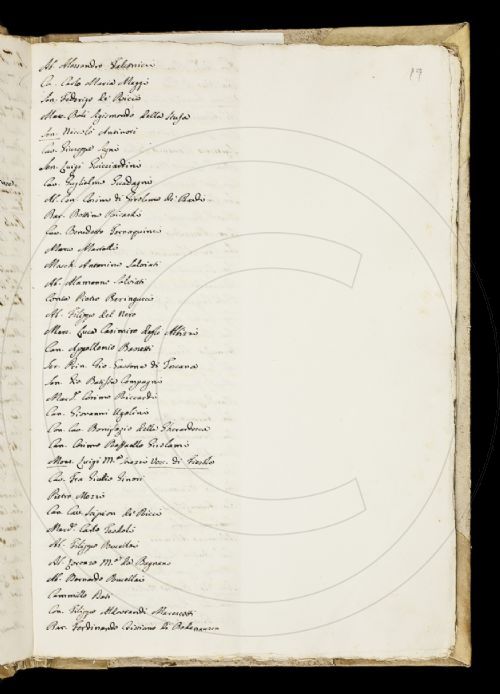 17
Ab. Alessandro
Ca. Carlo Maria Maggi
Sen. Federigo de' Ricci
Marc. Bali Sigismondo della Stufa
Sen. Niccolò Antinori
Cav. Giuseppe Segni
Sen. Luigi Guicciardini
Cav. Guglielmo Guadagni
Al. Con. Cosimo di Girolamo de' Bardi
Bar. Bettino Ricasoli
Cav. Benedetto Tornaquinci
Marco Martelli
March. Antonino Salviati
Ab. Alamanno Salviati
Conte Pietro Beringucci
Ab. Filippo del Nero
Marc. Luca Casimiro degli Albizi
Can. Appollonio Bassetti
Ser. Prin. Gio. Gastone di Toscana
Sen. Gio Batista Compagni
March. Cosimo Riccardi
Can. Giovanni Ugolini
Con. Cav. Bonifazio della Gherardesca
Can. Cosimo Raffaello Girolami
Mons. Luigi M.ª Strozzi Vesc. di Fiesole
Cav. Fra Giulio Ginori
Pietro Mozzi
Can. Cav. Scipion de' Ricci
March. Carlo
Ab. Filippo Rucellai
Ab. Lorenzo M.ª da Bagnano
Ab. Bernardo Rucellai
Cammillo Dati
Con. Filippo Aldobrandi Marescotti
Bar. Ferdinando Cristiano di